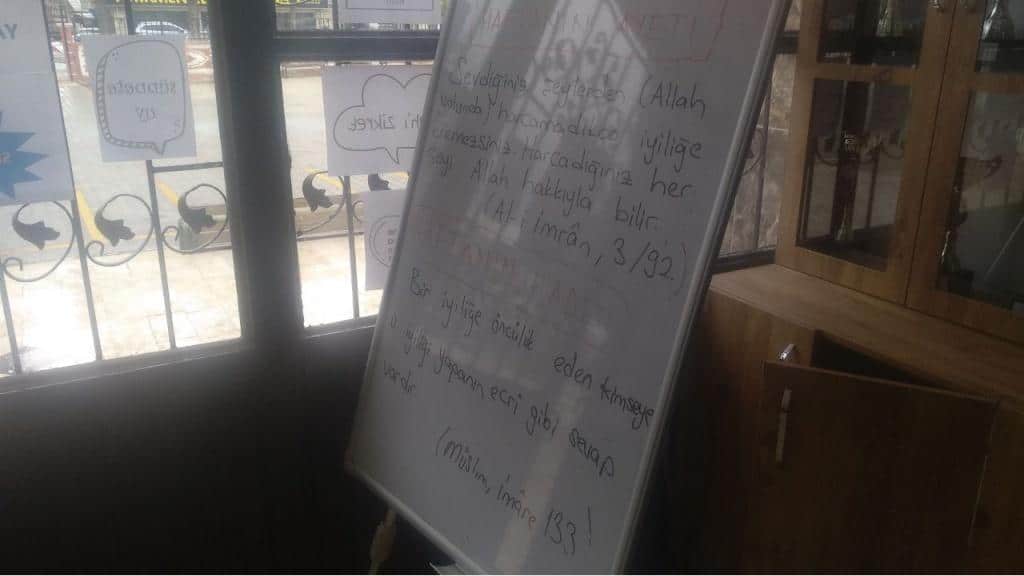 HAFTANIN AYETİ
Sevdiğiniz şeylerden (Allah
yolunda) harcamadıkça iyiliğe
eremezsiniz. Harcadığınız her
şeyi Allah hakkıyla bilir.
(Al-i İmrân, 3/92.)
HAFTANIN HADİSİ
Bir iyiliğe öncülük eden kimseye
o iyiliği yapanın ecri gibi sevap
vardır
(Müslim, İmâre 133)
zikret